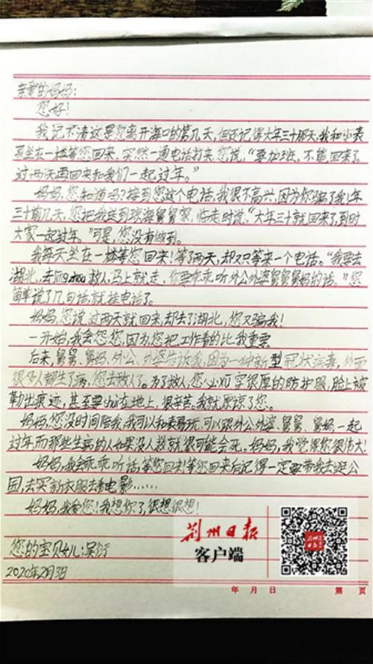 亲爱的妈妈：
您好！
我记不清这是您离开海口的第几天，但还记得大年三十那天，我和小表
哥坐在一楼等您回来，突然一通电话打来，您说，“要加班，不能回来了，
过两天再回来和我们一起过年。”
妈妈，您知道吗？接到您这个电话，我很不高兴，因为你骗了我！年
三十前几天，您把我送到琼海舅舅家，临走时说：“大年三十就回来了，到时
大家一起过年。”可是，您没有做到。
我每天坐在一楼等您回来！等了两天，却又只等来一个电话。“我要去
湖北，去前线救人，马上就走，你要乖乖听外公外婆舅舅舅妈的话。”您
简单说了几句话，就挂电话了。
妈妈，您说过两天就回来，却去了湖北，您又骗我！
一开始，我会怨您，因为，您把工作看的比我重要
后来，舅舅、舅妈、外公、外婆告诉我，因为一种新型冠状病毒，
很多人都生了病，您去救人了。为了救人，您必须穿很厚的防护服，脸上被
勒出来迹，甚至要睡在地上，很辛苦，我就原谅了您。
妈妈，您没时间陪我，我可以和表哥玩，可以跟外公外婆、舅舅、舅妈一起
过年，而那些生病的人如果没人救就很可能会死。妈妈，我觉得你很伟大！
妈妈，我会乖乖听话等您回来！等您回来后记得一定要带我去
园，去买新衣服，去看电影……
妈妈，我爱您！我想你了，很想很想！
您的宝贝女儿：吴
2020年2月3日
荆州日报
客户端
年 月 日
第 页